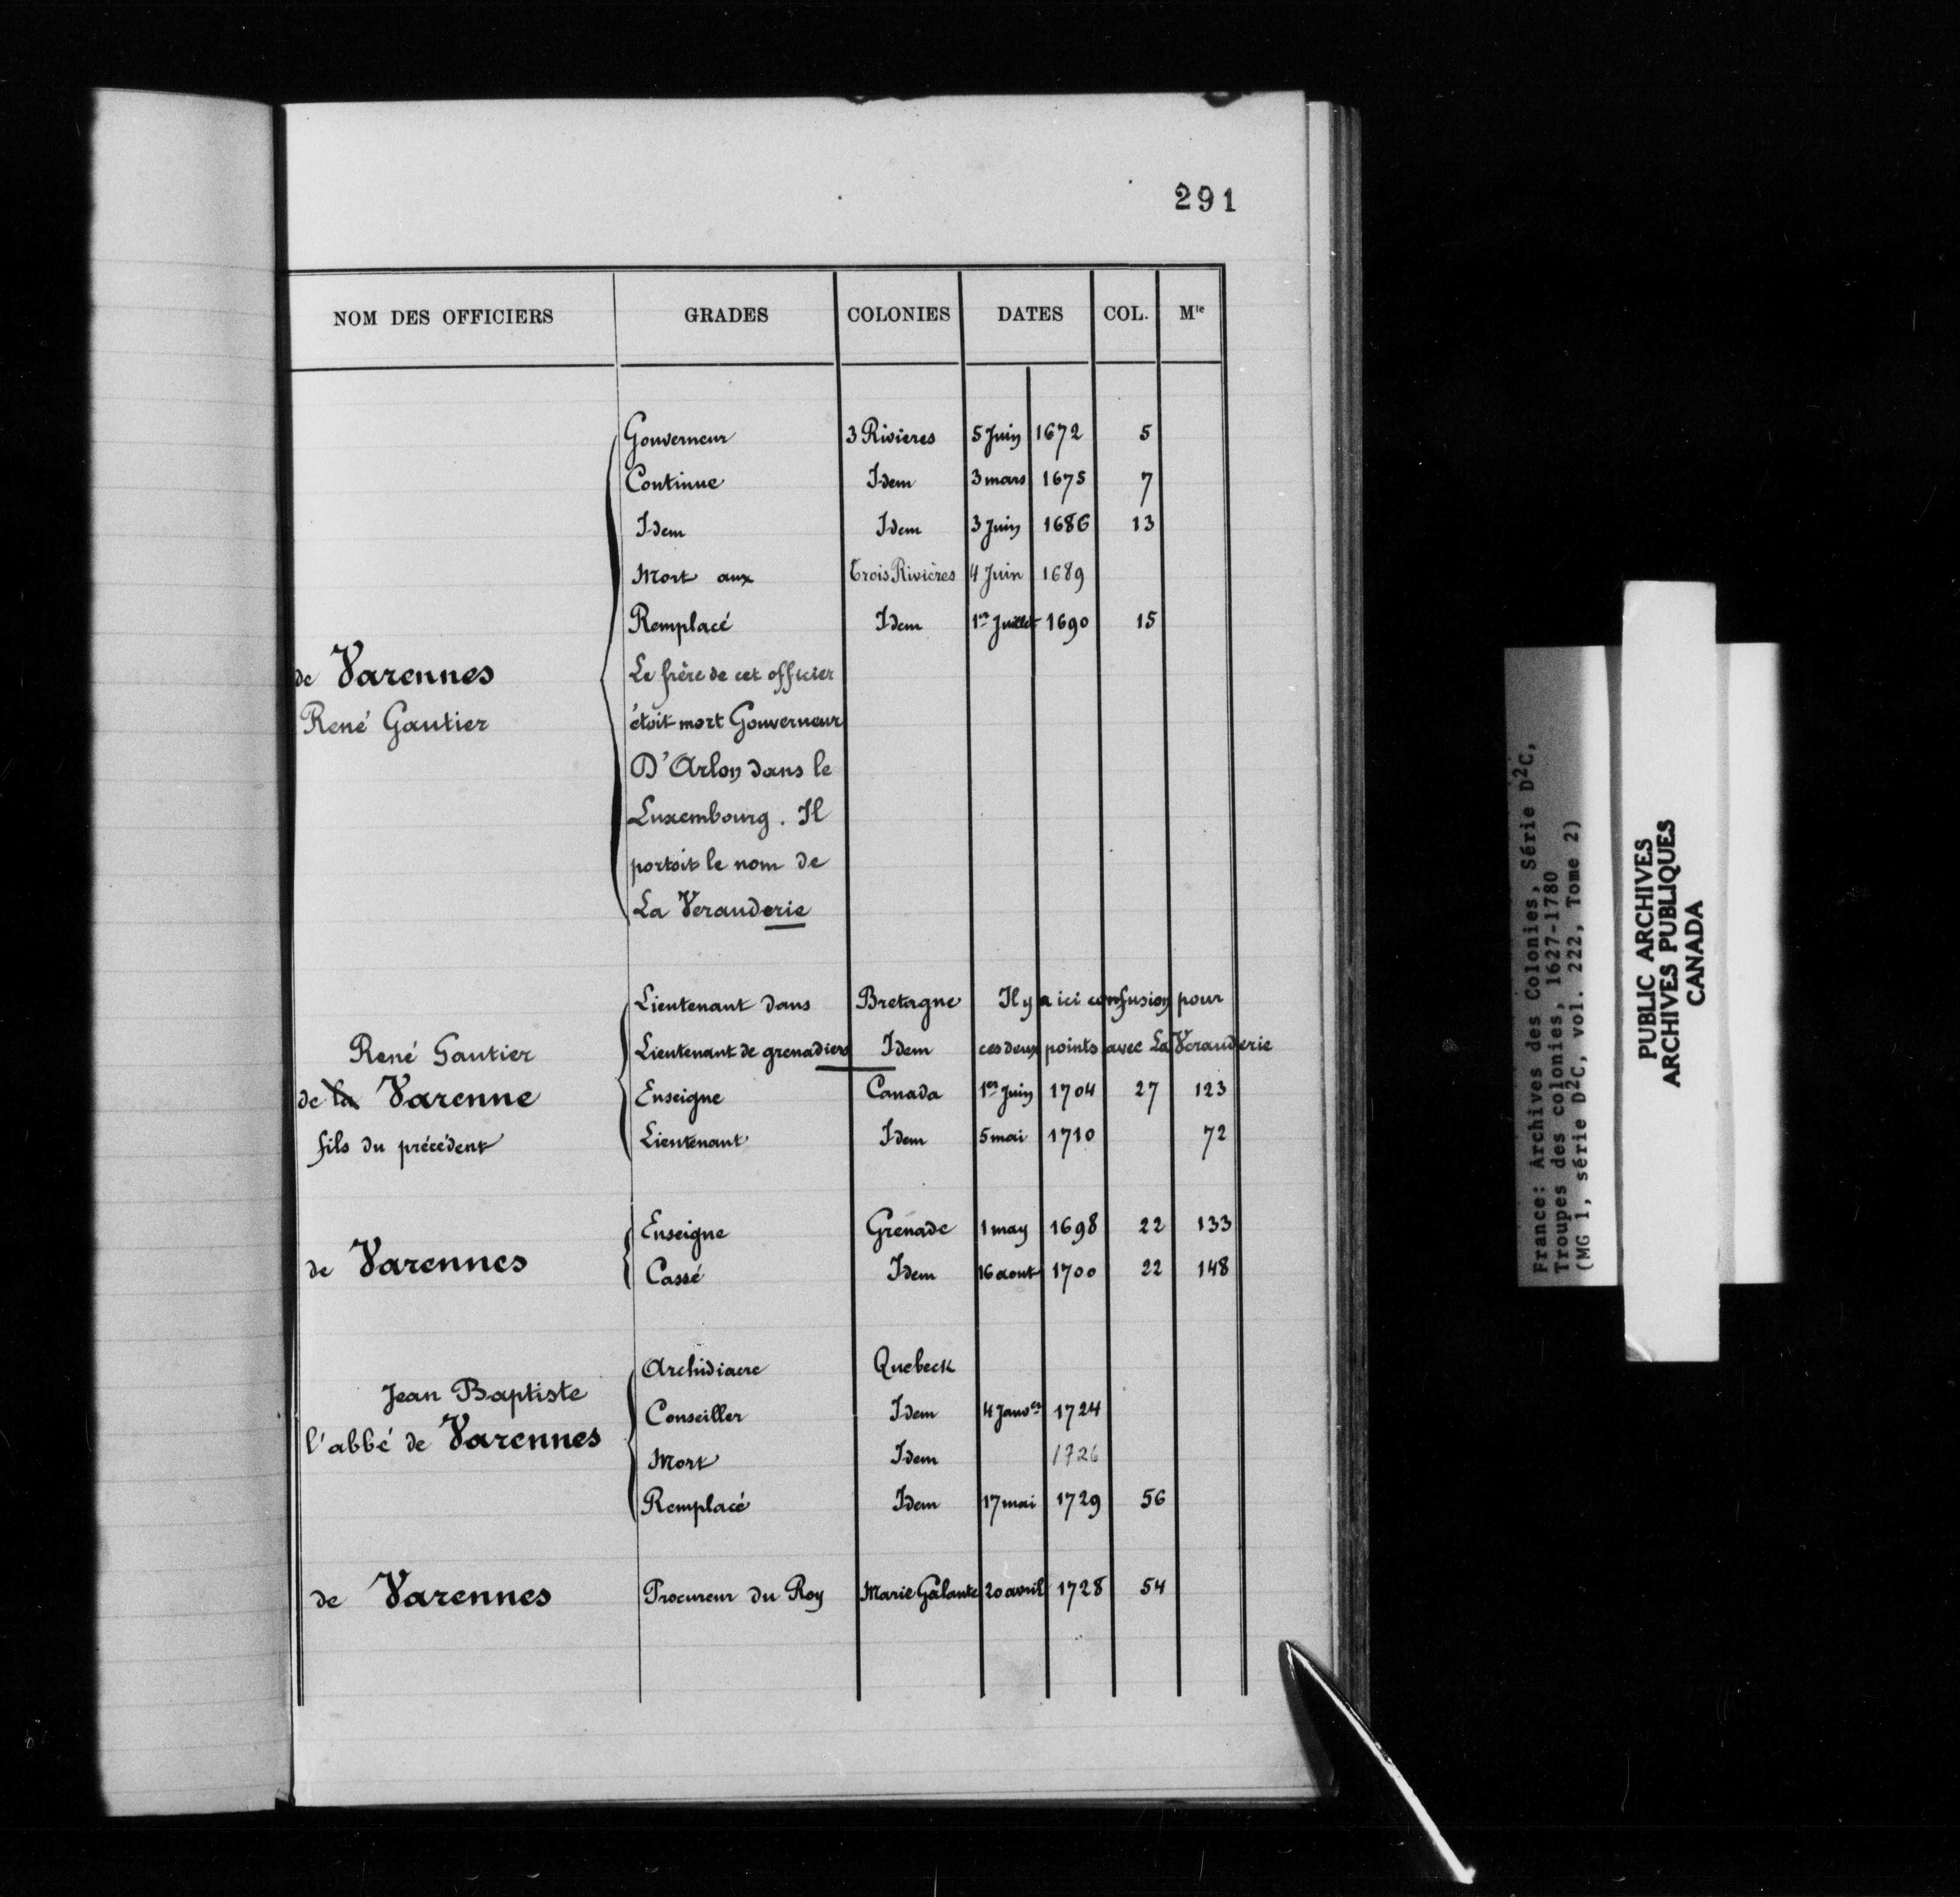 291
NOM DES OFFICIERS GRADES COLONIES DATES COL. Mle
Gouverneur 3 Rivieres 5 Juin 1672 5
Continue Idem 3 mars 1675 7
Idem Idem 3 Juin 1686 13
Mort aux Trois Rivières 4 Juin 1689
Remplacé Idem 1er Juillet 1690 15
de Varennes Le frère de cet officier
René Gautier étoit mort Gouverneur
D'Arlon dans le
Luxembourg. Il
portoit le nom de
La Veranderie
Lieutenant dans Bretagne Il y a ici confusion pour
René Gautier Lieutenant de grenadiers Idem ces deux points avec La Veranderie
de la Varenne Enseigne Canada 1er Juin 1704 27 123
fils du précédent Lieutenant Idem 5 mai 1710 72
Enseigne Grenade 1 may 1698 22 133
de Varennes Cassé Idem 16 aout 1700 22 148
Archidiacre Quebeck
Jean Baptiste
Conseiller Idem 4 Janver 1724
l'abbé de Varennes
Mort Idem 1726
Remplacé Idem 17 mai 1729 56
de Varennes Procureur du Roy Marie Galante 20 avril 1728 54
France: Archives des Colonies, Série D2C,
Troupes des colonies, 1627-1780
(MG 1, série D2C, vol. 222, Tome 2)
PUBLIC ARCHIVES
ARCHIVES PUBLIQUES
CANADA